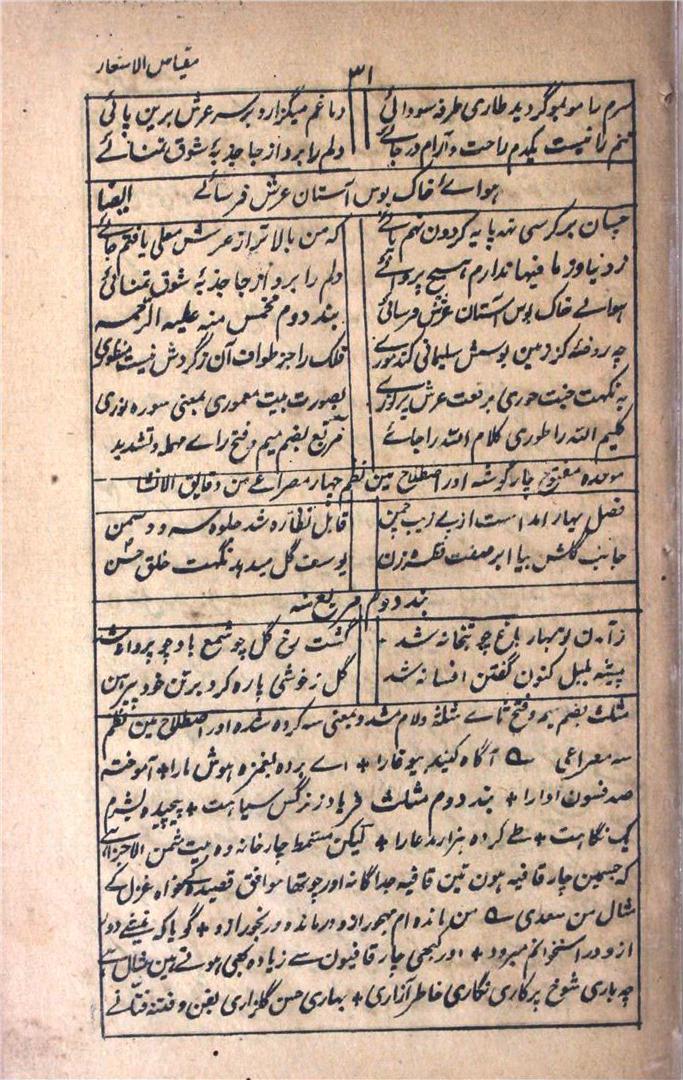 مقیاس الاشعار
۳۱
سرم را موبمو گردید طاری طرفه سودائی دماغم میگزارد بر سر عرش برین پائی
تنم را نیست یکدم راحت و آرام در جائے دلم را برد از جا جذبۂ شوق تمنائے
ہوائے خاک بوس آستان عرش فرسائے ایضاً
چسان بر کرسی نہ پایہ گردون نہم پائے که من بالاتر از عرش معلی یافتم جائے
ز دنیا و ز ما فیہا ندارم ہیچ پروائے دلم را برد از جا جذبۂ شوق تمنائی
ہوائے خاک بوس آستان عرش فرسائی بند دوم مخمس منہ علیہ الرحمہ
چہ روضۂ کز زمین بوسش سلیمانی کند مورے فلک را جز طواف آن ز گردش نیست منظوری
بہ نکہت جنت حوری برفعت عرش پر نورے بصورت بیت معموری بمعنی سورہ نوری
کلیم اللہ را طوری کلام اللہ را جائے مربع بضم میم و فتح راے مہملہ و تشدید
موحدہ مفتوح چار گوشہ اور اصطلاح مین نظم چہار مصراعے من دقایق الانشا
فصل بہار آمد است از پے زیب چمن قابل نظارہ شد جلوہ سرو و سمن
جانب گلشن بیا ابر صفت زن یوسف گل میدہد نکہت خلق حسن
بند دوم مربع منہ
ز آمدن نوبہار باغ چو بتخانہ شد گشت رخ گل چو شمع باد چو پروانہ شد
پیشہ بلبل کنون گفتن افسانہ شد گل ز خوشی پارہ کرد بر تن خود پیرہن
مثلث بضم میم و فتح ثاے مثلثہ و لام مشدد بمعنی سہ کردہ شدہ اور اصطلاح مین نظم
سہ مصراعی ؎ آگاہ کنید بیوفا را + اے بردہ بغمزہ ہوش ما را + آموختہ
صد فسون ادا را + بند دوم مثلث فریاد ز نرگس سیاہت + پیچیدہ بشرم
یک نگاہت + طے کردہ ہزار مدعا را + لیکن مسمط چار خانہ وہ بیت مثمن الاجزا ہے
کہ جسمین چار قافیہ ہون تین قافیہ جداگانہ اور چوتھا موافق قصیدہ کے خواہ غزل کے
مثال من سعدی ؎ من ماندہ ام مہجور ازو درماندہ و رنجور ازو + گویا کہ نیشے دور
ازو در استخوانم میرود + اور کبھی چار قافیون سے زیادہ کبھی ہوتے ہین مثال ہے
چہ یاری شوخ پرکاری نگاری خاطر آزاری + بہاری حسن گلزاری بفن و فتنہ فتانے